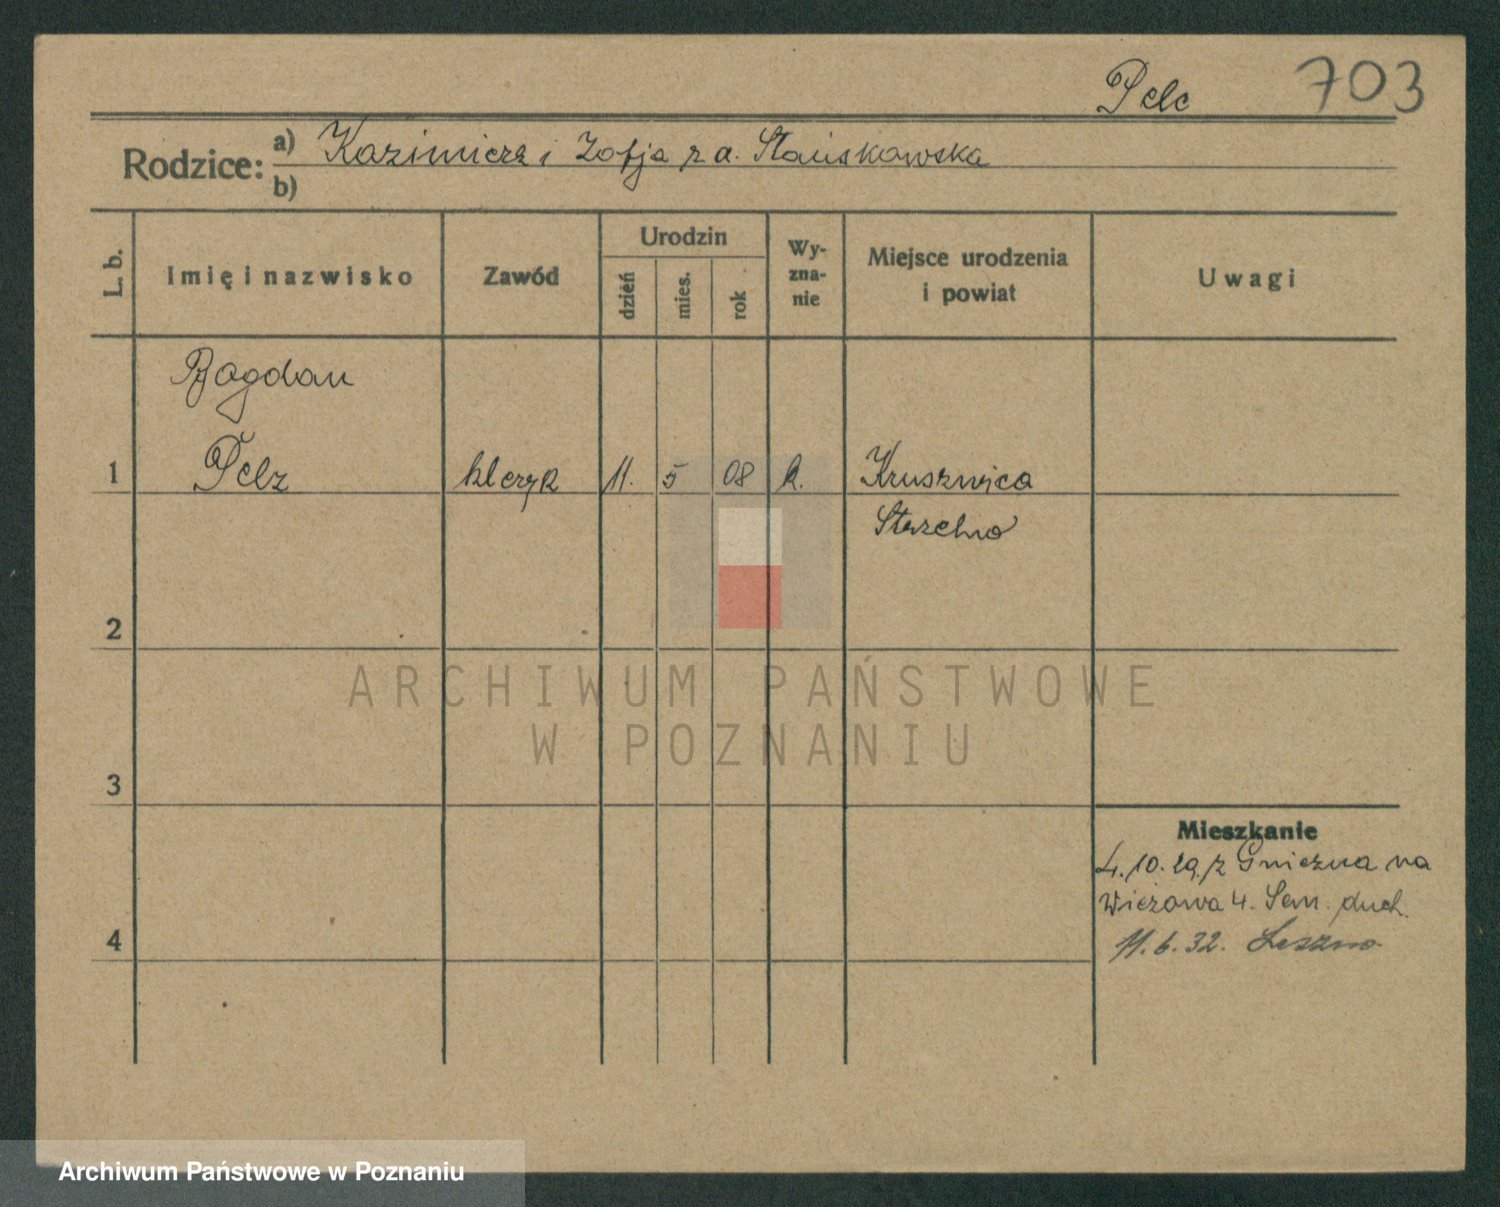 Pelc 703
Rodzice: a) Kazimierz i Zofja z d. Stańskowska
b)
L. b. Imię i nazwisko Zawód Urodzin dzień mies. rok Wy-zna-nie Miejsce urodzenia i powiat Uwagi
Bogdan
1 Pelz kleryk 11. 5 08 k. Kruszwica
Strzelno
2
ARCHIWUM PAŃSTWOWE
W POZNANIU
3
Mieszkanie
4. 10. 29. z Gniezna na
Wieżowa 4. Sem. duch.
4 11. 6. 32. Leszno
Archiwum Państwowe w Poznaniu